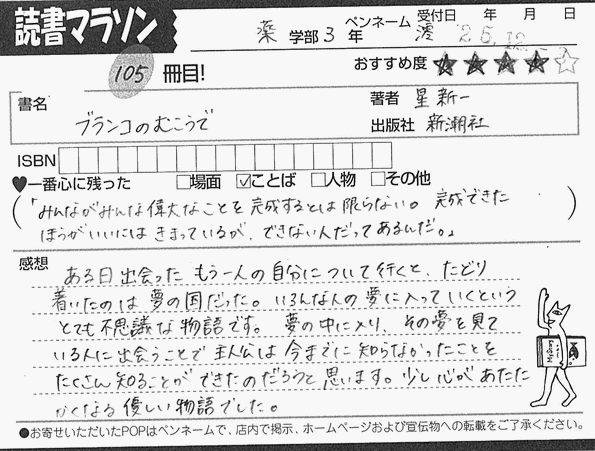 読書マラソン
ペンネーム 受付日 年 月 日
薬 学部 3 年 澪 25.12
105 冊目!
おすすめ度 ★★★★☆
書名
ブランコのむこうで
著者 星新一
出版社 新潮社
ISBN
♥一番心に残った □場面 ☑ことば □人物 □その他
(「みんながみんな偉大なことを完成するとは限らない。完成できた
ほうがいいにはきまっているが、できない人だってあるんだ。」)
感想
ある日出会ったもう一人の自分について行くと、たどり
着いたのは夢の国だった。いろんな人の夢に入っていくという
とても不思議な物語です。夢の中に入り、その夢を見て
いる人に出会うことで主人公は今までに知らなかったことを
たくさん知ることができたのだろうと思います。少し心があたた
かくなる優しい物語でした。
●お寄せいただいたPOPはペンネームで、店内で掲示、ホームページおよび宣伝物への転載をご了承ください。